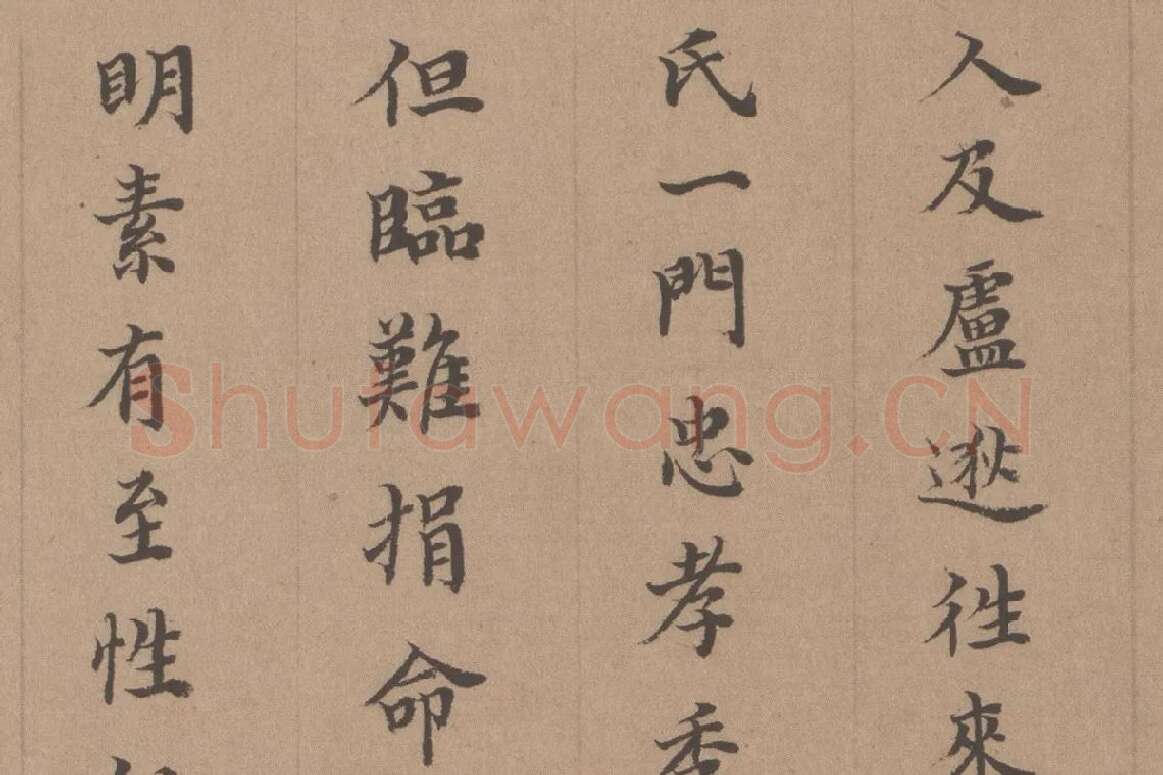 人及盧逖徃來
氏一門忠孝
但臨難捐命
眀素有至性
Shufawang.CN